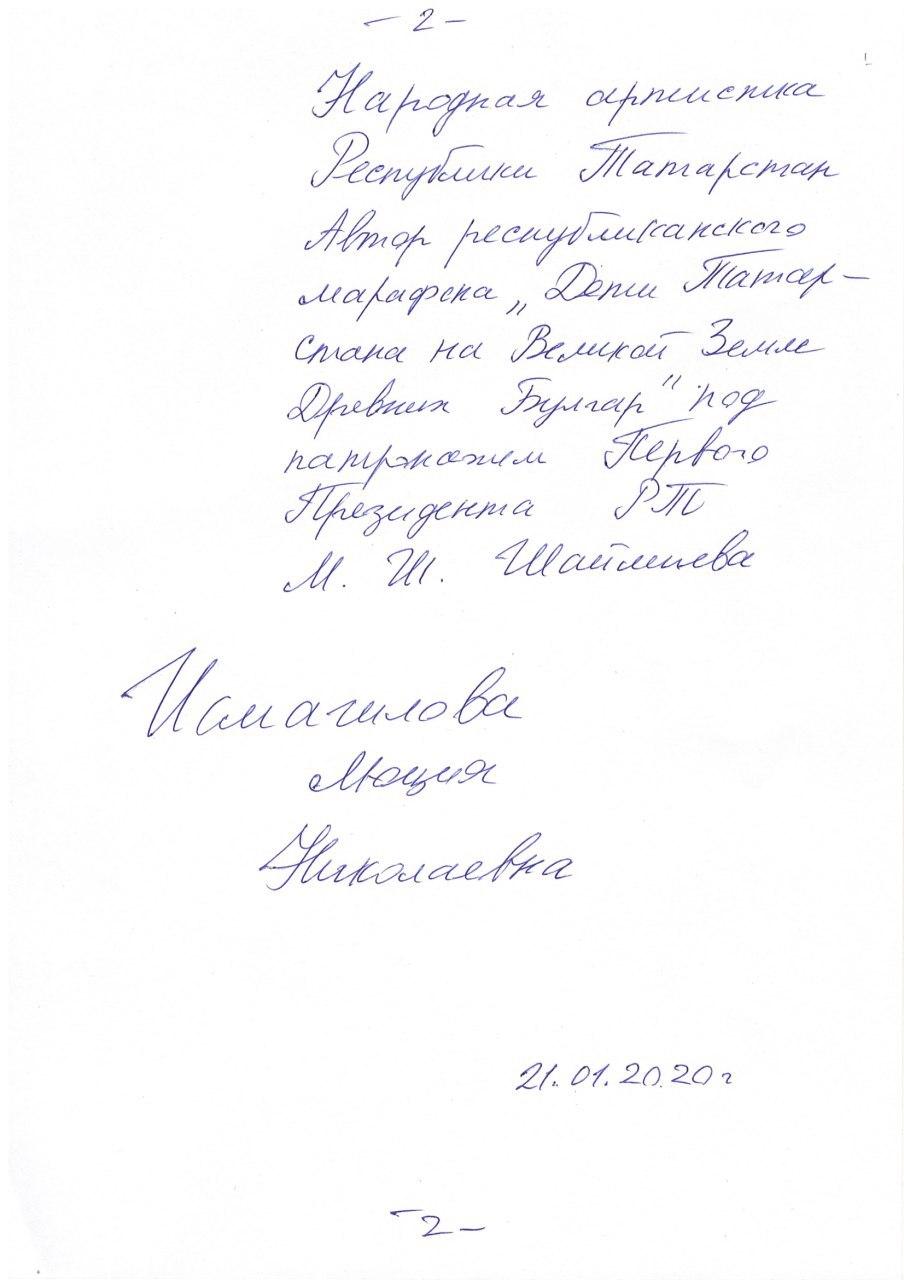 – 2 –
Народная артистка
Республики Татарстан
Автор республиканского
марафона „Дети Татар–
стана на Великой Земле
Древних Булгар" под
патронажем Первого
Президента РТ
М. Ш. Шаймиева
Исмагилова
Люция
Николаевна
21.01.2020г
– 2 –